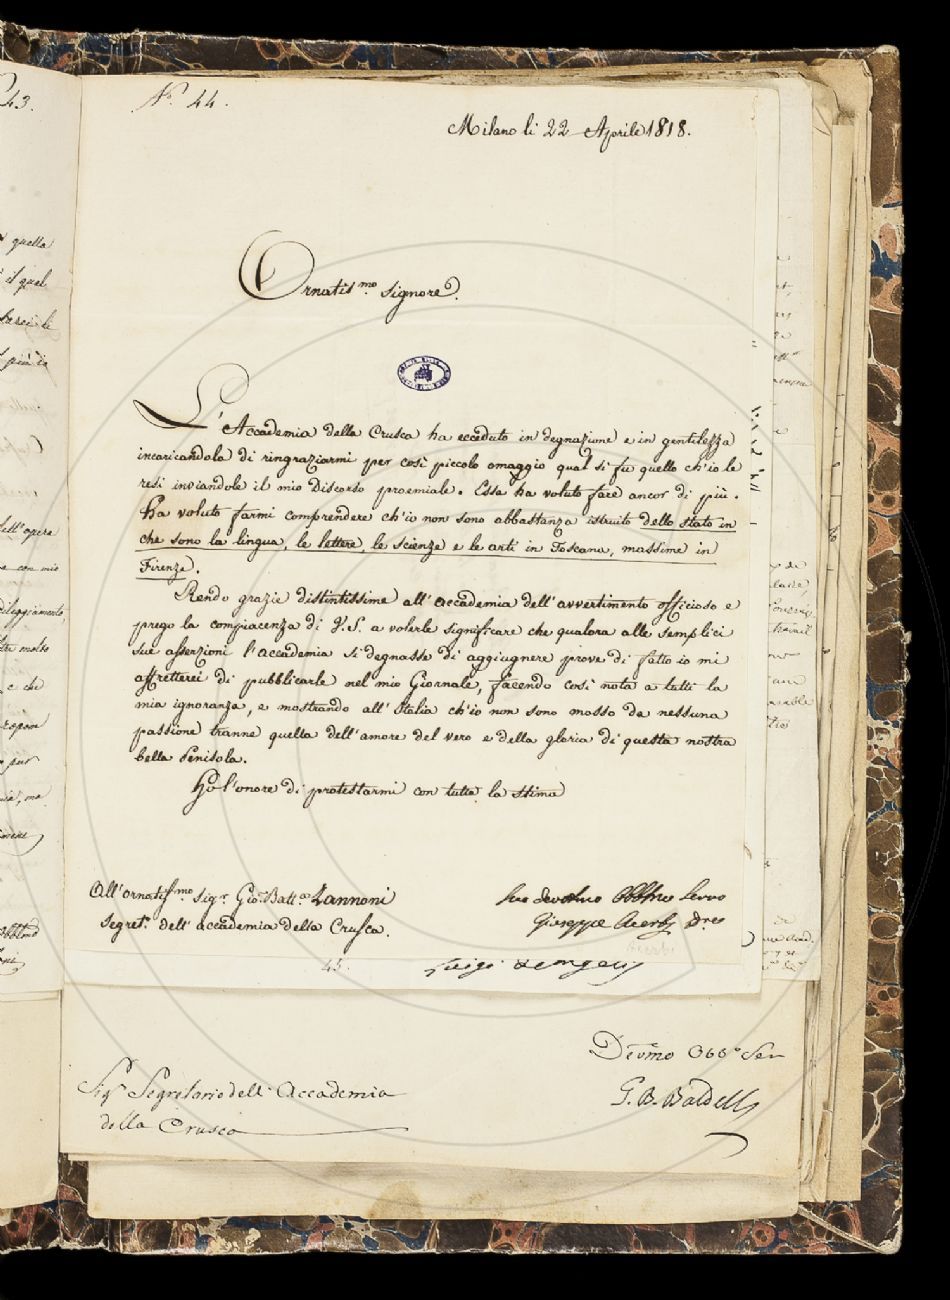 43.
N.° 44.
Milano li 22 Aprile 1818.
Ornatis.mo Signore.
L'Accademia della Crusca ha ecceduto in degnazione e in gentilezza
incaricandola di ringraziarmi per così piccolo omaggio qual si fu quello ch'io le
resi inviandole il mio Discorso proemiale. Essa ha voluto fare ancor di più.
Ha voluto farmi comprendere ch'io non sono abbastanza istruito dello stato in
che sono la lingua, le lettere, le scienze e le arti in Toscana, massime in
Firenze.
Rendo grazie distintissime all'accademia dell'avvertimento officioso e
prego la compiacenza di V.S. a volerle significare che qualora alle semplici
sue asserzioni l'accademia si degnasse di aggiugnere prove di fatto io mi
affretterei di pubblicarle nel mio Giornale, facendo così nota a tutti la
mia ignoranza, e mostrando all'Italia ch'io non sono mosso da nessuna
passione tranne quella dell'amore del vero e della gloria di questa nostra
bella Penisola.
Ho l'onore di protestarmi con tutta la stima
All'ornatiss.mo Sig.r Gio. Batt.a Zannoni
Segret.o dell'accademia della Crusca.
Suo devotmo Obblmo Servo
Giuseppe Acerbi Dre
Acerbi
45.
Luigi
Devmo Obb.o Ser
G. B. Baldelli
Sig.r Segretario dell'Accademia
della Crusca
quella
il qual
più
dell'opera
e con mio
molto
e che